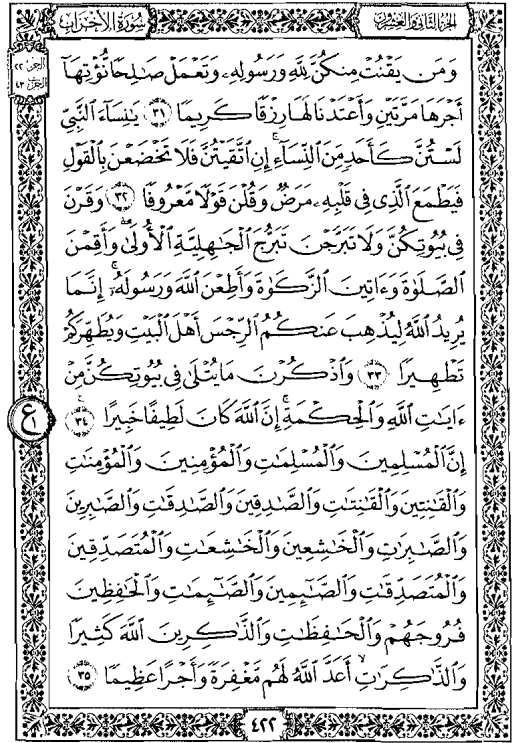 الجزء الثاني والعشرون
سورة الأحزاب
الجزء ٢٢
الحزب ٤٣
وَمَن يَقْنُتْ مِنكُنَّ لِلَّهِ وَرَسُولِهِۦ وَتَعْمَلْ صَٰلِحًا نُّؤْتِهَآ
أَجْرَهَا مَرَّتَيْنِ وَأَعْتَدْنَا لَهَا رِزْقًا كَرِيمًا ٣١ يَٰنِسَآءَ ٱلنَّبِىِّ
لَسْتُنَّ كَأَحَدٍ مِّنَ ٱلنِّسَآءِ ۚ إِنِ ٱتَّقَيْتُنَّ فَلَا تَخْضَعْنَ بِٱلْقَوْلِ
فَيَطْمَعَ ٱلَّذِى فِى قَلْبِهِۦ مَرَضٌ وَقُلْنَ قَوْلًا مَّعْرُوفًا ٣٢ وَقَرْنَ
فِى بُيُوتِكُنَّ وَلَا تَبَرَّجْنَ تَبَرُّجَ ٱلْجَٰهِلِيَّةِ ٱلْأُولَىٰ ۖ وَأَقِمْنَ
ٱلصَّلَوٰةَ وَءَاتِينَ ٱلزَّكَوٰةَ وَأَطِعْنَ ٱللَّهَ وَرَسُولَهُۥٓ ۚ إِنَّمَا
يُرِيدُ ٱللَّهُ لِيُذْهِبَ عَنكُمُ ٱلرِّجْسَ أَهْلَ ٱلْبَيْتِ وَيُطَهِّرَكُمْ
تَطْهِيرًا ٣٣ وَٱذْكُرْنَ مَا يُتْلَىٰ فِى بُيُوتِكُنَّ مِنْ
ءَايَٰتِ ٱللَّهِ وَٱلْحِكْمَةِ ۚ إِنَّ ٱللَّهَ كَانَ لَطِيفًا خَبِيرًا ٣٤
ع
١
إِنَّ ٱلْمُسْلِمِينَ وَٱلْمُسْلِمَٰتِ وَٱلْمُؤْمِنِينَ وَٱلْمُؤْمِنَٰتِ
وَٱلْقَٰنِتِينَ وَٱلْقَٰنِتَٰتِ وَٱلصَّٰدِقِينَ وَٱلصَّٰدِقَٰتِ وَٱلصَّٰبِرِينَ
وَٱلصَّٰبِرَٰتِ وَٱلْخَٰشِعِينَ وَٱلْخَٰشِعَٰتِ وَٱلْمُتَصَدِّقِينَ
وَٱلْمُتَصَدِّقَٰتِ وَٱلصَّٰٓئِمِينَ وَٱلصَّٰٓئِمَٰتِ وَٱلْحَٰفِظِينَ
فُرُوجَهُمْ وَٱلْحَٰفِظَٰتِ وَٱلذَّٰكِرِينَ ٱللَّهَ كَثِيرًا
وَٱلذَّٰكِرَٰتِ أَعَدَّ ٱللَّهُ لَهُم مَّغْفِرَةً وَأَجْرًا عَظِيمًا ٣٥
٤٢٢